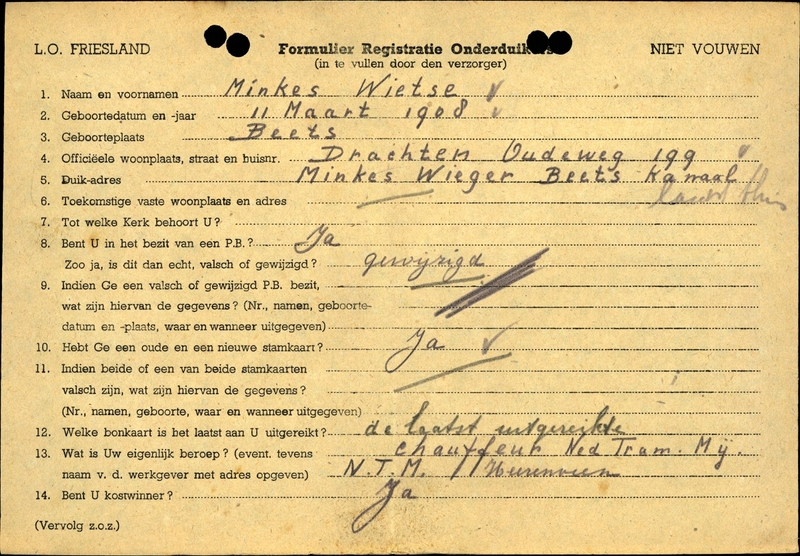 L.O. FRIESLAND Formulier Registratie Onderduikers NIET VOUWEN
(in te vullen door den verzorger)
1. Naam en voornamen Minkes Wietse
2. Geboortedatum en -jaar 11 Maart 1908
3. Geboorteplaats Beets
4. Officiëele woonplaats, straat en huisnr. Drachten Oudeweg 199
5. Duik-adres Minkes Wieger Beets Kanaal
6. Toekomstige vaste woonplaats en adres
7. Tot welke Kerk behoort U?
8. Bent U in het bezit van een P.B.? Ja
Zoo ja, is dit dan echt, valsch of gewijzigd? gewijzigd
9. Indien Ge een valsch of gewijzigd P.B. bezit,
wat zijn hiervan de gegevens? (Nr., namen, geboorte-
datum en -plaats, waar en wanneer uitgegeven)
10. Hebt Ge een oude en een nieuwe stamkaart? Ja
11. Indien beide of een van beide stamkaarten
valsch zijn, wat zijn hiervan de gegevens?
(Nr., namen, geboorte, waar en wanneer uitgegeven)
12. Welke bonkaart is het laatst aan U uitgereikt? de laatst uitgereikte
13. Wat is Uw eigenlijk beroep? (event. tevens chauffeur Ned Tram. Mij.
naam v. d. werkgever met adres opgeven) N.T.M. Heerenveen
14. Bent U kostwinner? Ja
(Vervolg z.o.z.)